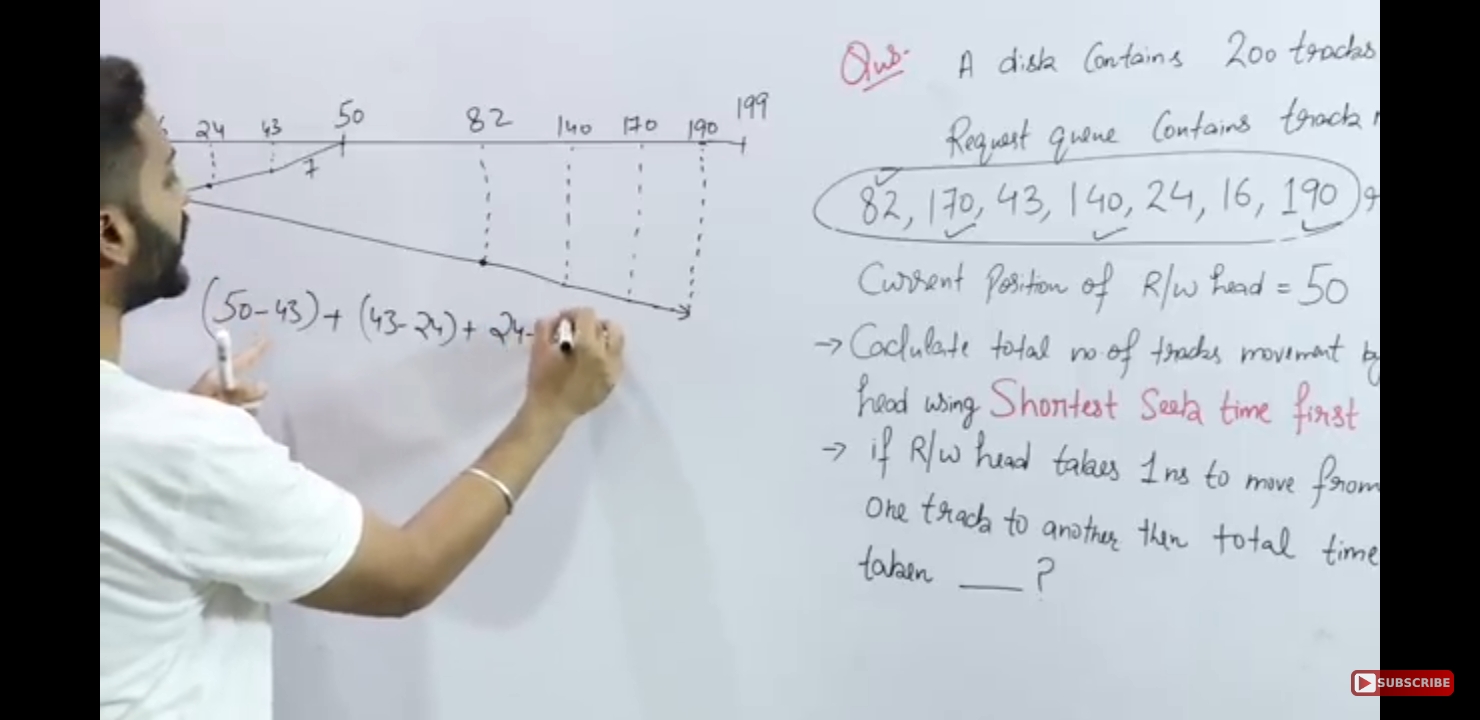 24 43 50 82 140 170 190 199
7
(50-43)+ (43-24)+ 24-
Qus. A disk Contains 200 tracks
Request queue Contains track
82, 170, 43, 140, 24, 16, 190
Current Position of R/w head = 50
→ Caclulate total no. of tracks movement by
head using Shortest Seek time first
→ if R/w head takes 1 ns to move from
One track to another then total time
taken ___ ?
SUBSCRIBE